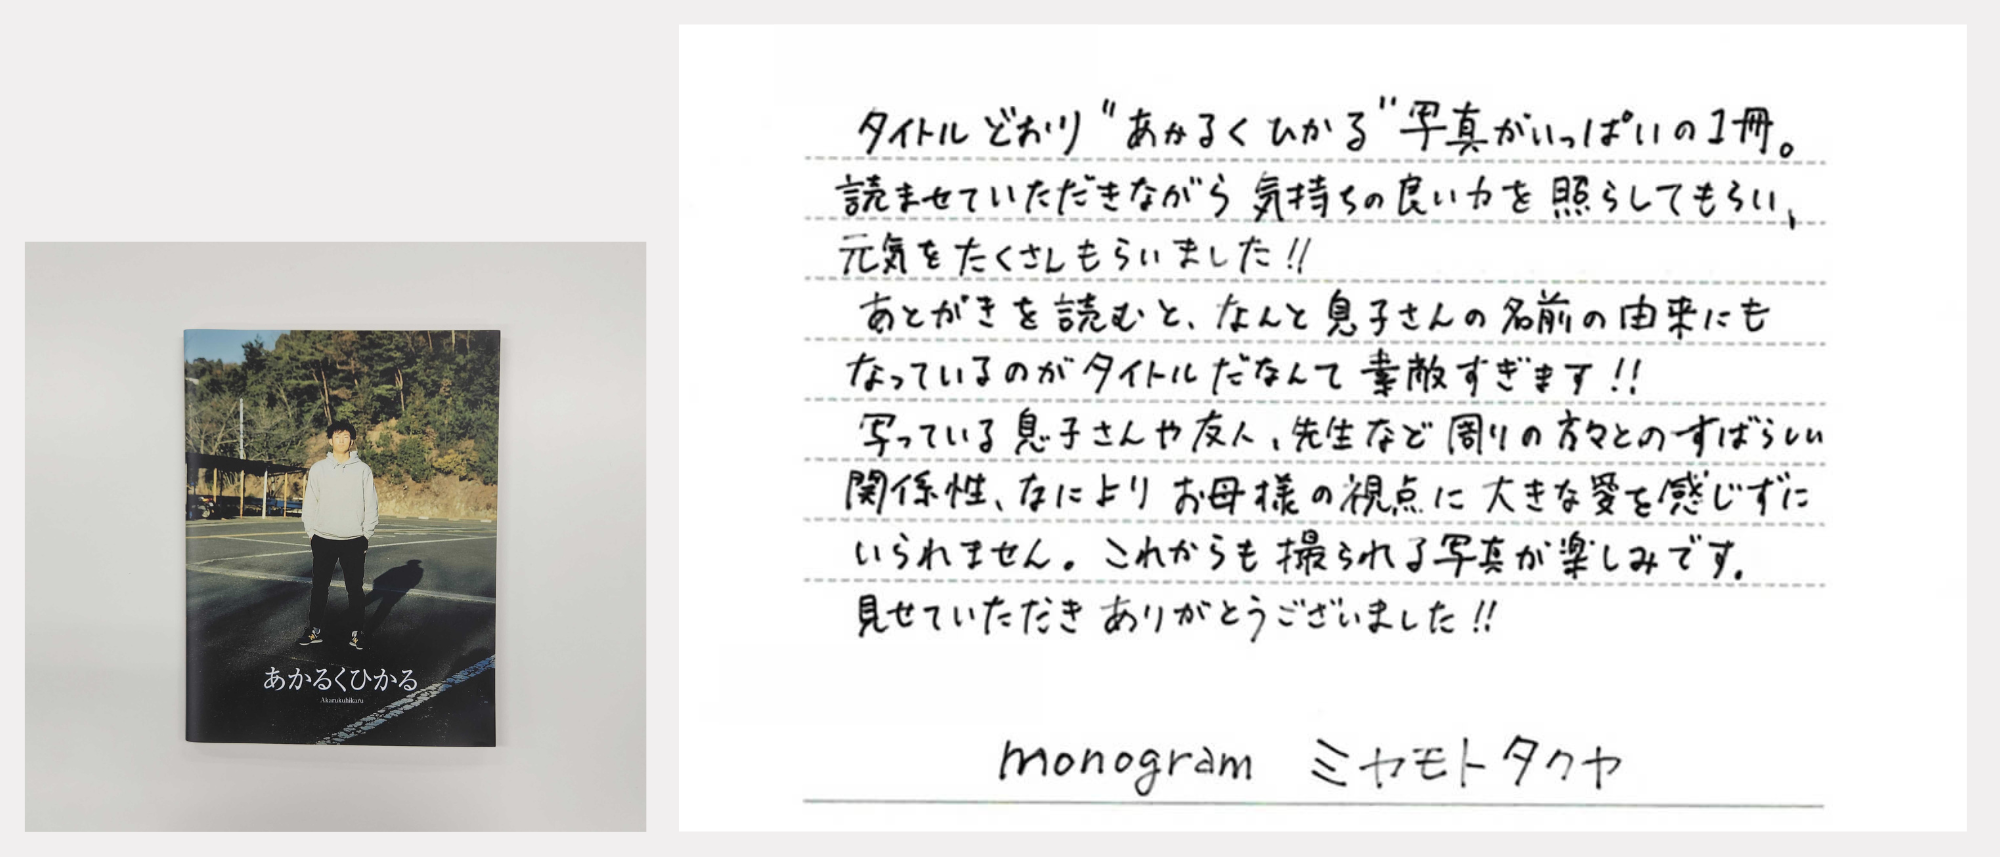 あかるくひかる
Akarukuhikaru
タイトルどおり"あかるくひかる"写真がいっぱいの1冊。
読ませていただきながら気持ちの良い力を照らしてもらい、
元気をたくさんもらいました!!
あとがきを読むと、なんと息子さんの名前の由来にも
なっているのがタイトルだなんて素敵すぎます!!
写っている息子さんや友人、先生など周りの方々とのすばらしい
関係性、なによりお母様の視点に大きな愛を感じずに
いられません。これからも撮られる写真が楽しみです。
見せていただきありがとうございました!!
monogram ミヤモトタクヤ